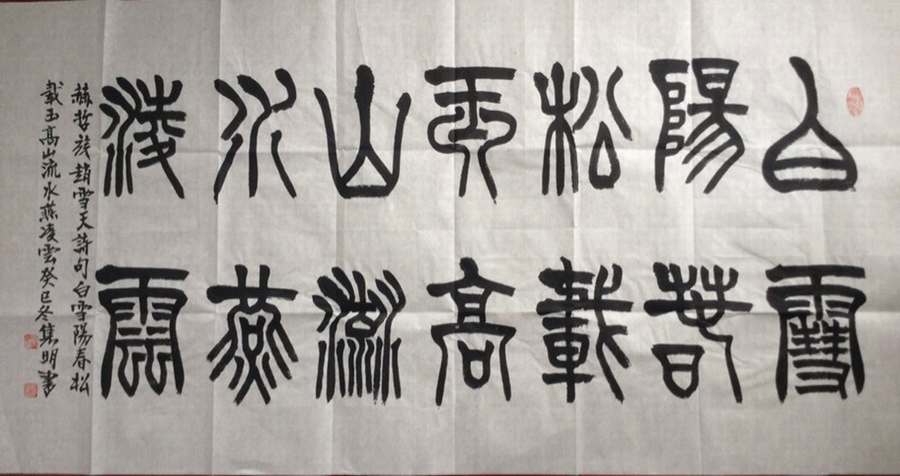 白雪
陽春
松載
玉高
山流
水燕
淩雲
赫哲族趙雪天詩句白雪陽春松
載玉高山流水燕凌雲癸巳冬集明書